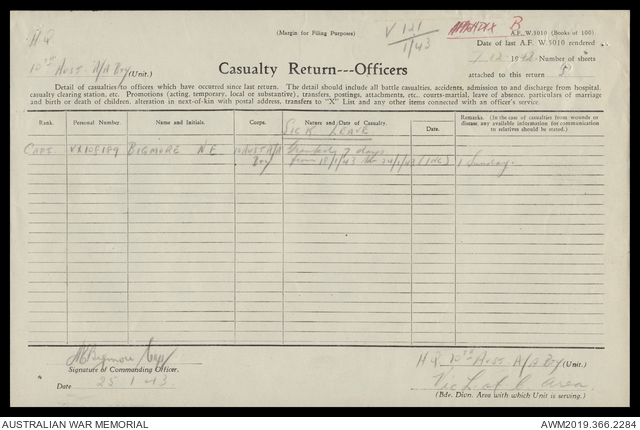 (Margin for Filing Purposes)
V 121
1/43
APPENDIX B
A.F. W.3010 (Books of 100)
HQ
Date of last A.F. W.3010 rendered
7/12/1942 Number of sheets
10th Aust A/A Bty (Unit.)
Casualty Return---Officers
attached to this return
Detail of casualties to officers which have occurred since last return. The detail should include all battle casualties, accidents, admission to and discharge from hospital.
casualty clearing station, etc. Promotions (acting, temporary, local or substantive), transfers, postings, attachments, etc. courts-martial, leave of absence, particulars of marriage
and birth or death of children, alteration in next-of-kin with postal address, transfers to "X" List and any other items connected with an officer's service.
Rank.
Personal Number.
Name and Initials.
Corps.
Nature and Date of Casualty.
Date.
Remarks. (In the case of casualties from wounds or
disease any available information for communication
to relatives should be stated.)
SICK LEAVE
CAPT BIGMORE NE 10 AUST A/A Granted 7 days
Bty from 18/1/43 to 24/1/43 (INC) 1 Sunday.
NE Bigmore Capt
Signature of Commanding Officer.
Date 25 1 43.
HQ 10th Aust A/A Bty (Unit.)
Vic L of C Area.
(Bde. Divn. Area with which Unit is serving.)
AUSTRALIAN WAR MEMORIAL
AWM2019.366.2284